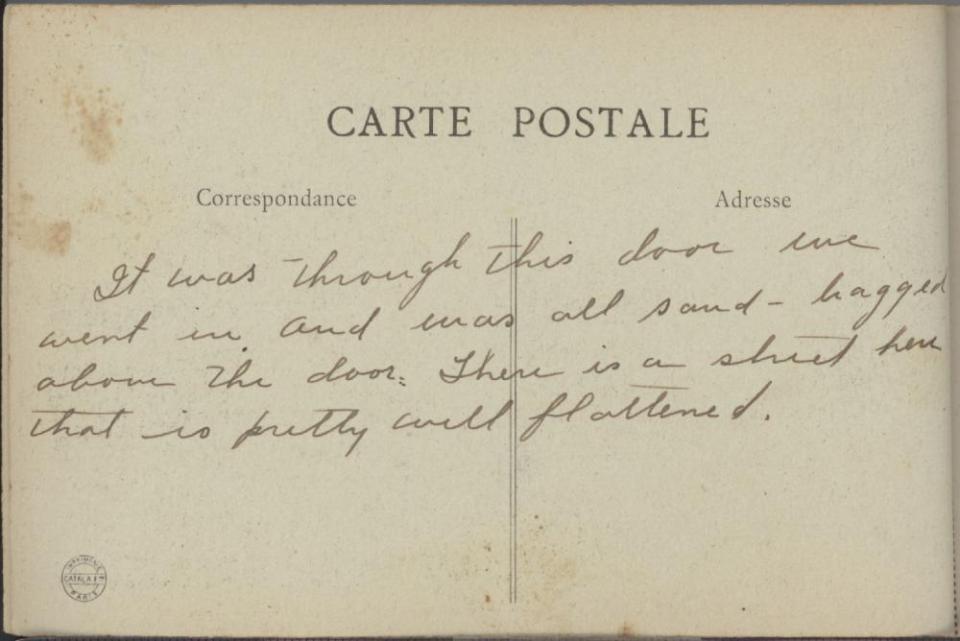 CARTE POSTALE
Correspondance
Adresse
It was through this door we
went in. And was all sand-bagged
above the door. There is a street here
that is pretty well flattened.
IMPRIMERIE
CATALA Fs
PARIS